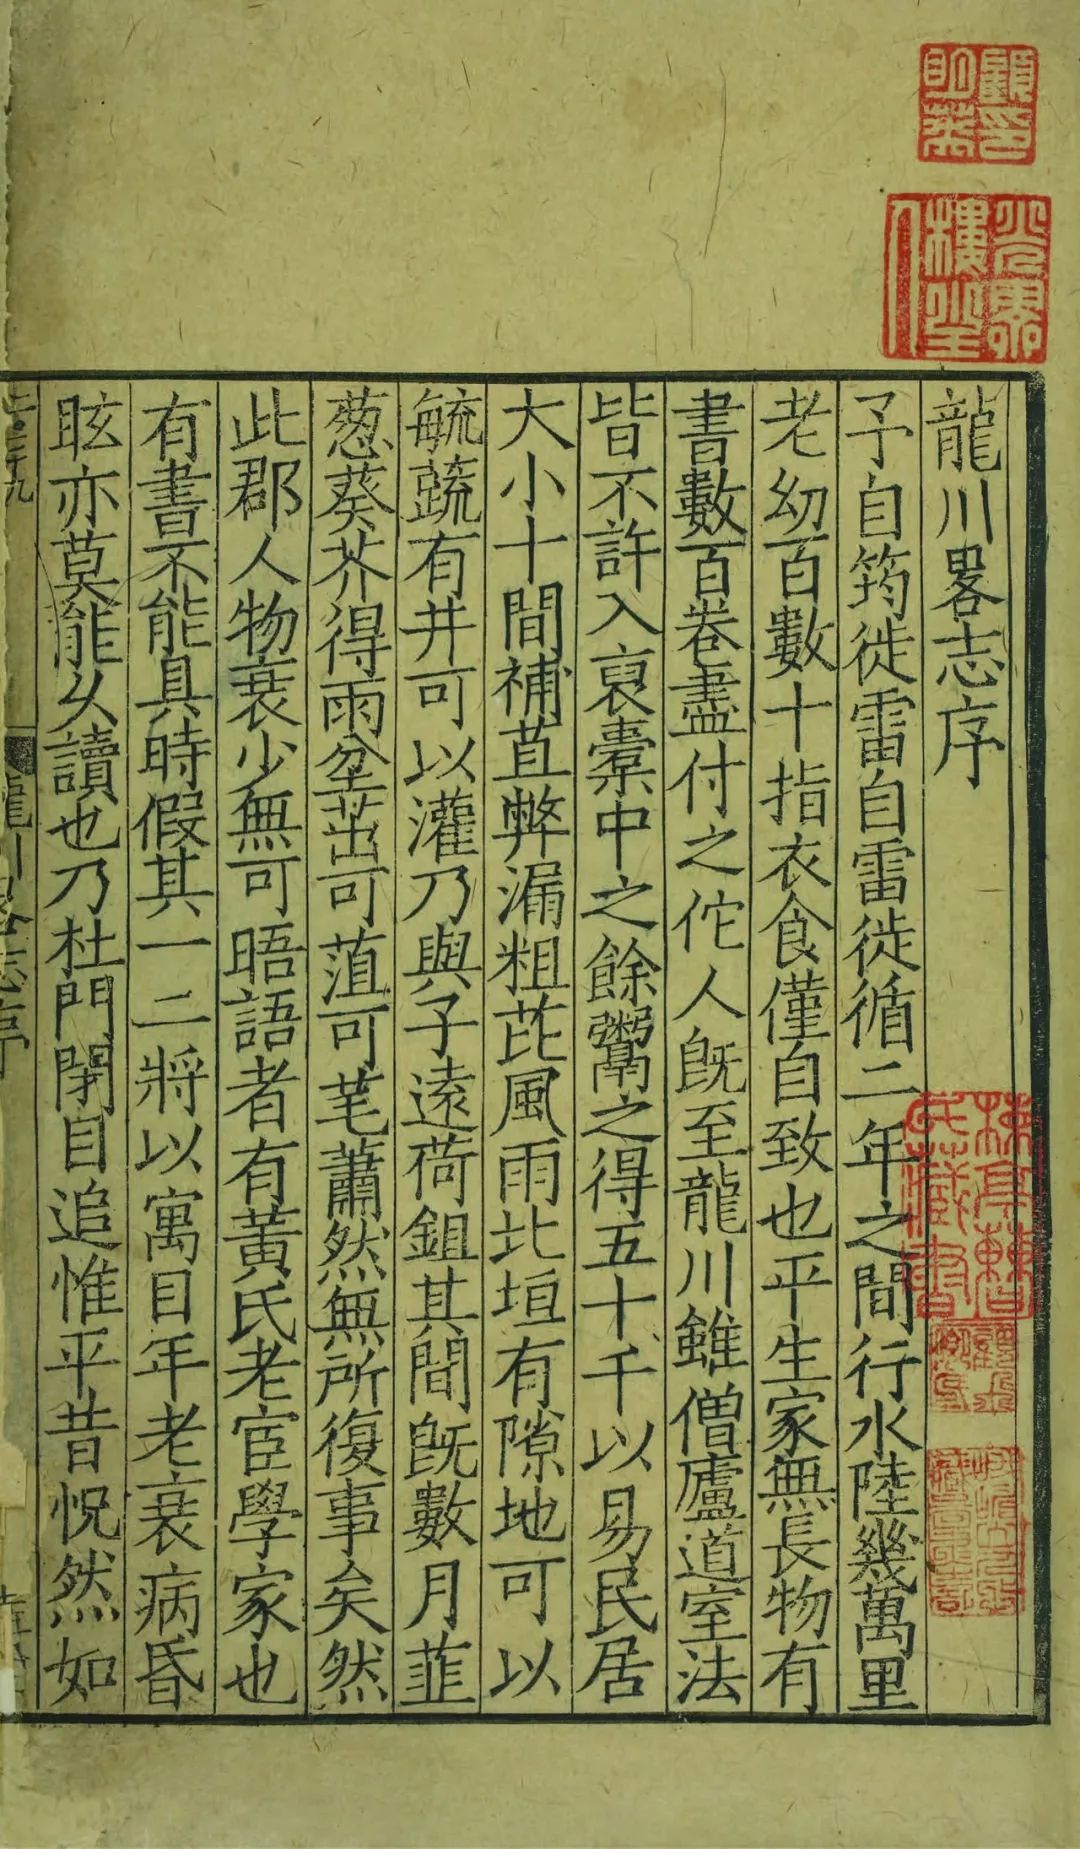 龍川畧志序
予自筠徙雷自雷徙循二年之間行水陸幾萬里
老幼百數十指衣食僅自致也平生家無長物有
書數百卷盡付之佗人既至龍川雖僧廬道室法
皆不許入裒橐中之餘鬻之得五十千以易民居
大小十間補苴弊漏粗芘風雨北垣有隙地可以
毓蔬有井可以灌乃與子遠荷鉏其間既數月韮
葱葵芥得雨坌茁可葅可芼蕭然無所復事矣然
此郡人物衰少無可晤語者有黃氏老宦學家也
有書不能具時假其一二將以寓目年老衰病昏
眩亦莫能久讀也乃杜門閉目追惟平昔怳然如
顧印
樓
棟亭曹氏藏書